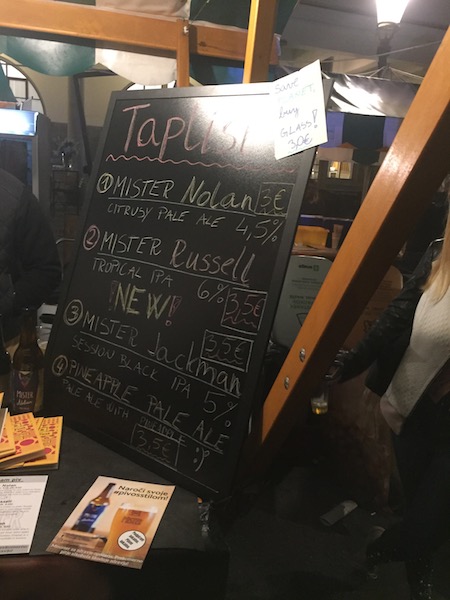 Save
PLANET,
buy
GLASS!
3,0€
TAPLIS
① MISTER Nolan 3€
CITRUSY PALE ALE 4,5%
② MISTER Russell
TROPICAL IPA 6% 3,5€
!NEW!
③ MISTER Jackman 3,5€
SESSION BLACK IPA 5%
④ PINEAPPLE PALE ALE
PALE ALE WITH PINEAPPLE :)
3,5€
MISTER
Naroči svoje
#pivosstilom!